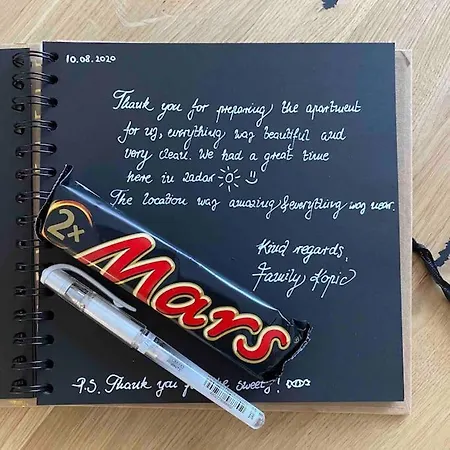 10.08.2020
Thank you for preparing the apartment
for us, everything was beautiful and
very clean. We had a great time
here in Zadar
The location was amazing & everything was near.
Kind regards,
Family Kopic
2x
Mars
P.S. Thank you the sweets!